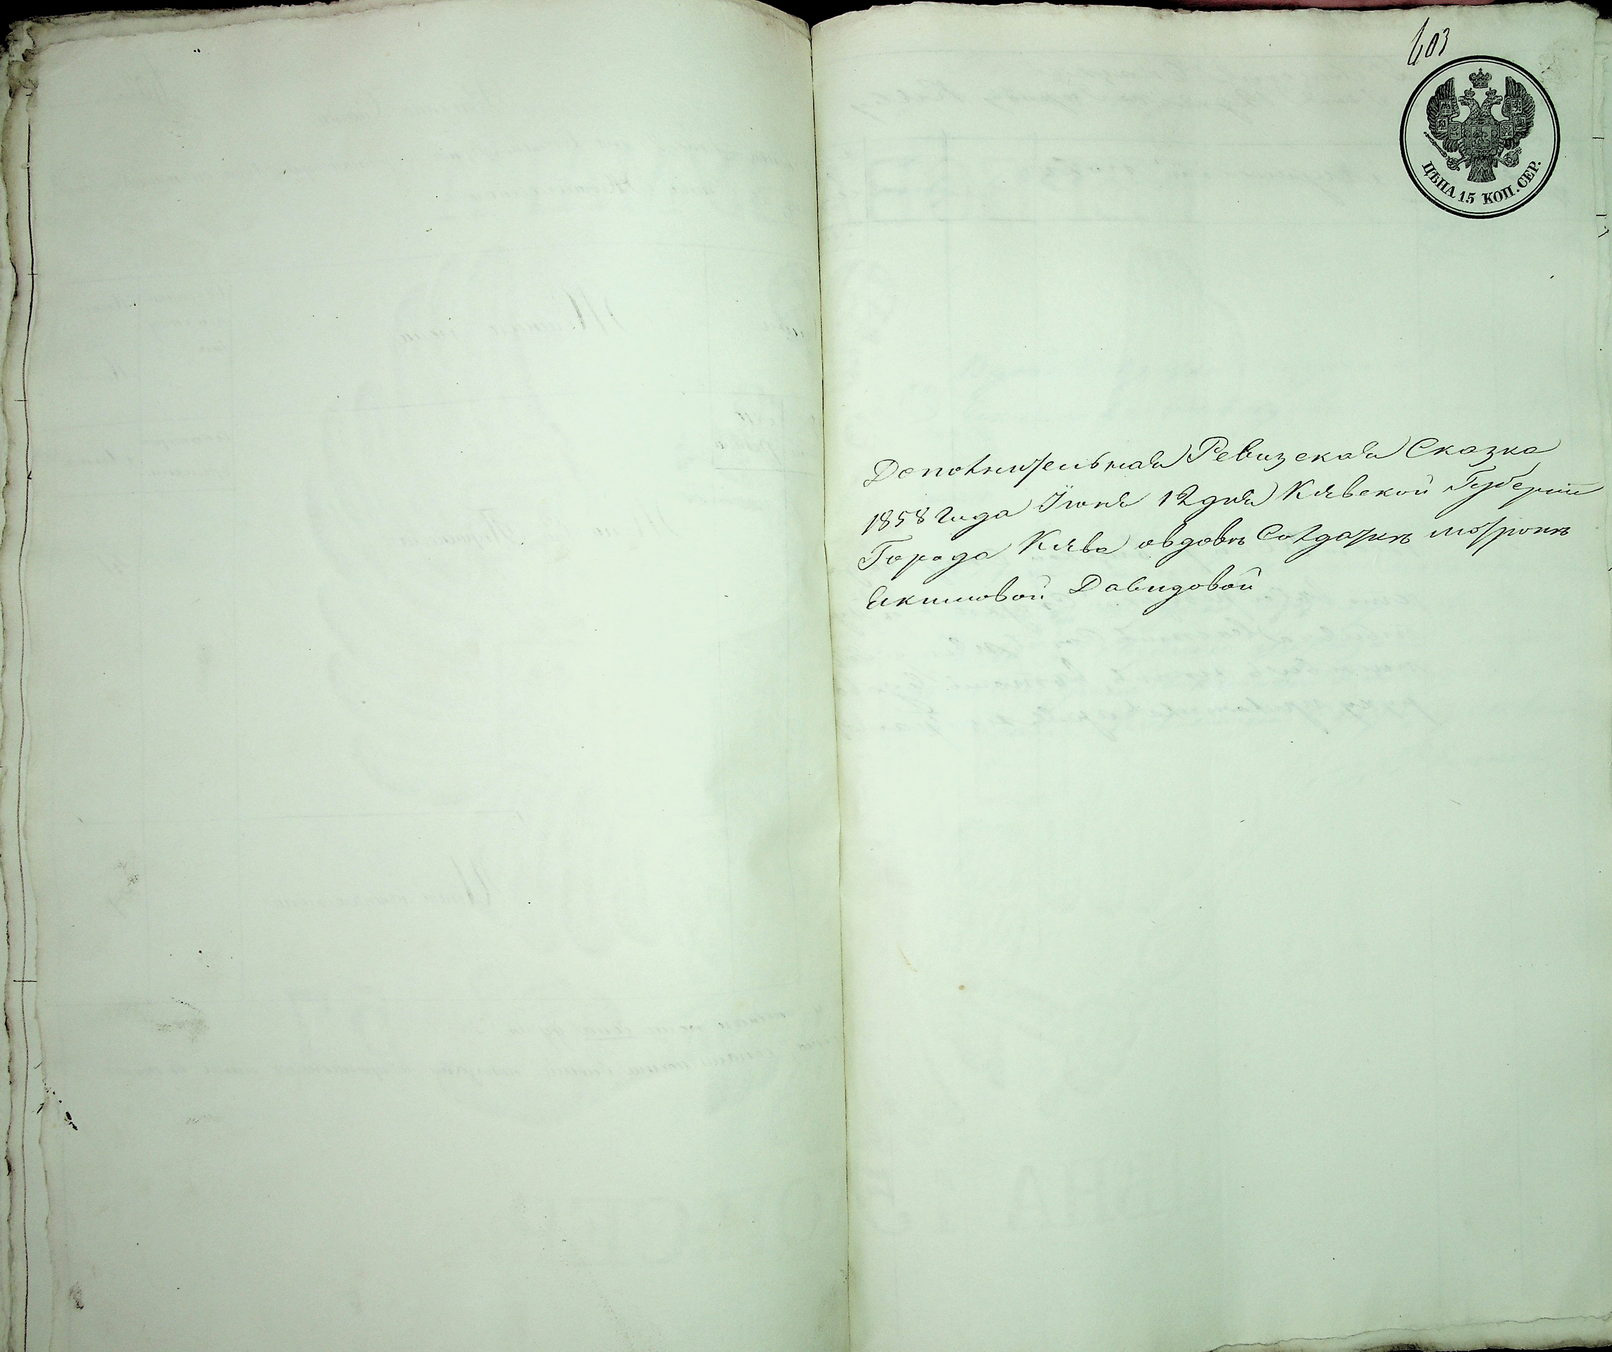 603
ЦѢНА 15 КОП. СЕР.
Дополнительная Ревизская Сказка
1858 года Іюня 12 дня Кіевской Губерніи
Города Кіева о вдовѣ Солдаткѣ
Екимовой Давидовой